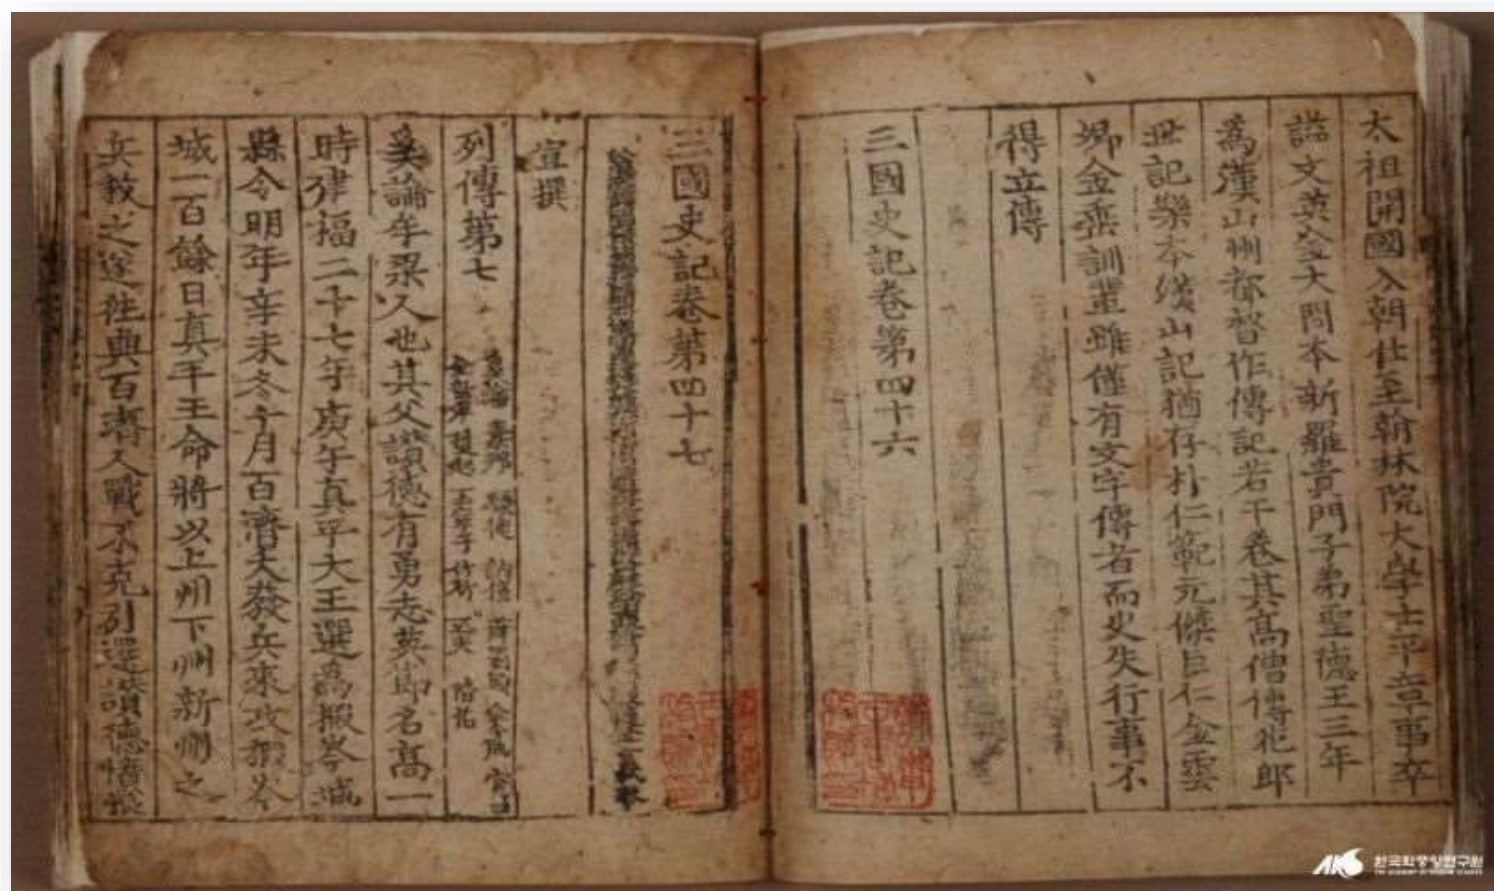 太祖開國入朝仕至翰林院大學士平章事卒
諡文英金大問本新羅貴門子弟聖德王三年
爲漢山州都督作傳記若干卷其高僧傳花郎
世記樂本漢山記猶存朴仁範元傑巨仁金雲
卿金垂訓輩雖僅有文字傳者而史失行事不
得立傳
三國史記卷第四十六
三國史記卷第四十七
宣撰
列傳第七
奚論 素那 驟徒 訥催 薛罽頭 金令胤 官昌
金歆運 裂起 丕寧子 竹竹 匹夫 階伯
奚論牟梁人也其父讃德有勇志英節名高一
時建福二十七年庚午真平大王選爲椵岑城
縣令明年辛未冬十月百濟大發兵來攻椵岑
城一百餘日真平王命將以上州下州新州之
兵救之遂往與百濟人戰不克引還讃德憤恨
AKS 한국학중앙연구원
THE ACADEMY OF KOREAN STUDIES